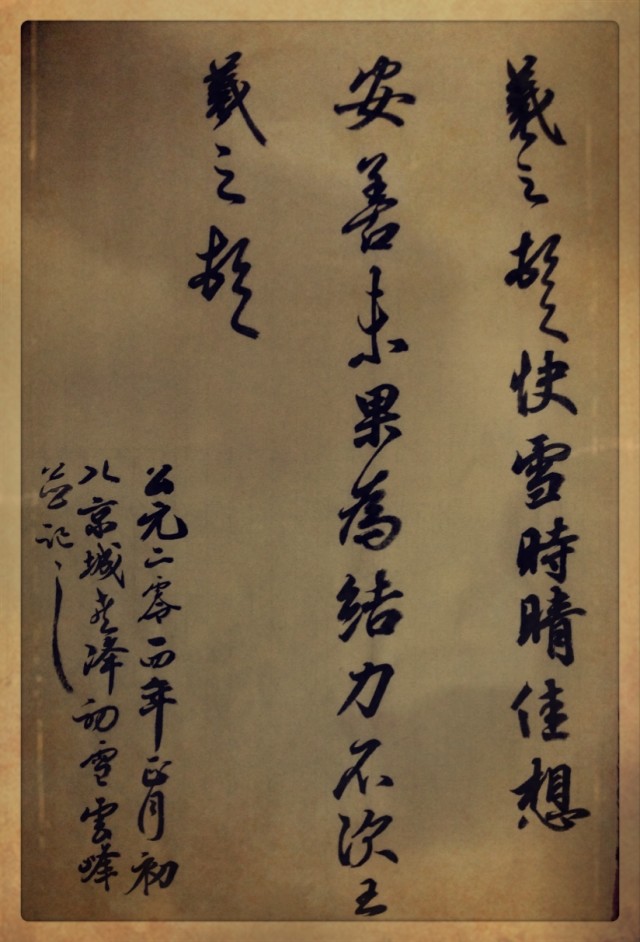 羲之頓首快雪時晴佳想
安善未果為結力不次王
羲之頓首
公元二零一四年正月初
八京城喜降初雪雲峰
並記